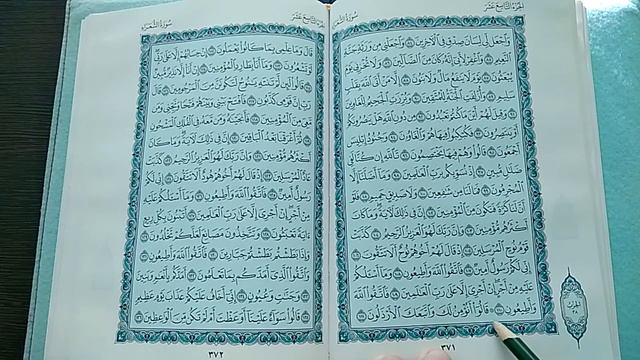 الجزء التاسع عشر
سورة الشعراء
وَاجْعَل لِّي لِسَانَ صِدْقٍ فِي الْآخِرِينَ وَاجْعَلْنِي مِن وَرَثَةِ جَنَّةِ
النَّعِيمِ وَاغْفِرْ لِأَبِي إِنَّهُ كَانَ مِنَ الضَّالِّينَ وَلَا تُخْزِنِي يَوْمَ
يُبْعَثُونَ يَوْمَ لَا يَنفَعُ مَالٌ وَلَا بَنُونَ إِلَّا مَنْ أَتَى اللَّهَ بِقَلْبٍ
سَلِيمٍ وَأُزْلِفَتِ الْجَنَّةُ لِلْمُتَّقِينَ وَبُرِّزَتِ الْجَحِيمُ لِلْغَاوِينَ
وَقِيلَ لَهُمْ أَيْنَ مَا كُنتُمْ تَعْبُدُونَ مِن دُونِ اللَّهِ هَلْ يَنصُرُونَكُمْ
أَوْ يَنتَصِرُونَ فَكُبْكِبُوا فِيهَا هُمْ وَالْغَاوُونَ وَجُنُودُ إِبْلِيسَ
أَجْمَعُونَ قَالُوا وَهُمْ فِيهَا يَخْتَصِمُونَ تَاللَّهِ إِن كُنَّا لَفِي
ضَلَالٍ مُّبِينٍ إِذْ نُسَوِّيكُم بِرَبِّ الْعَالَمِينَ وَمَا أَضَلَّنَا إِلَّا
الْمُجْرِمُونَ فَمَا لَنَا مِن شَافِعِينَ وَلَا صَدِيقٍ حَمِيمٍ فَلَوْ
أَنَّ لَنَا كَرَّةً فَنَكُونَ مِنَ الْمُؤْمِنِينَ إِنَّ فِي ذَٰلِكَ لَآيَةً وَمَا كَانَ
أَكْثَرُهُم مُّؤْمِنِينَ وَإِنَّ رَبَّكَ لَهُوَ الْعَزِيزُ الرَّحِيمُ كَذَّبَتْ
قَوْمُ نُوحٍ الْمُرْسَلِينَ إِذْ قَالَ لَهُمْ أَخُوهُمْ نُوحٌ أَلَا تَتَّقُونَ
إِنِّي لَكُمْ رَسُولٌ أَمِينٌ فَاتَّقُوا اللَّهَ وَأَطِيعُونِ وَمَا أَسْأَلُكُمْ
عَلَيْهِ مِنْ أَجْرٍ إِنْ أَجْرِيَ إِلَّا عَلَىٰ رَبِّ الْعَالَمِينَ فَاتَّقُوا اللَّهَ
وَأَطِيعُونِ قَالُوا أَنُؤْمِنُ لَكَ وَاتَّبَعَكَ الْأَرْذَلُونَ
٣٧١
الحزب
٣٨
الجزء التاسع عشر
سورة الشعراء
قَالَ وَمَا عِلْمِي بِمَا كَانُوا يَعْمَلُونَ إِنْ حِسَابُهُمْ إِلَّا عَلَىٰ رَبِّي
لَوْ تَشْعُرُونَ وَمَا أَنَا بِطَارِدِ الْمُؤْمِنِينَ إِنْ أَنَا إِلَّا نَذِيرٌ مُّبِينٌ
قَالُوا لَئِن لَّمْ تَنتَهِ يَا نُوحُ لَتَكُونَنَّ مِنَ الْمَرْجُومِينَ قَالَ
رَبِّ إِنَّ قَوْمِي كَذَّبُونِ فَافْتَحْ بَيْنِي وَبَيْنَهُمْ فَتْحًا وَنَجِّنِي وَمَن
مَّعِيَ مِنَ الْمُؤْمِنِينَ فَأَنجَيْنَاهُ وَمَن مَّعَهُ فِي الْفُلْكِ الْمَشْحُونِ
ثُمَّ أَغْرَقْنَا بَعْدُ الْبَاقِينَ إِنَّ فِي ذَٰلِكَ لَآيَةً وَمَا كَانَ
أَكْثَرُهُم مُّؤْمِنِينَ وَإِنَّ رَبَّكَ لَهُوَ الْعَزِيزُ الرَّحِيمُ كَذَّبَتْ
عَادٌ الْمُرْسَلِينَ إِذْ قَالَ لَهُمْ أَخُوهُمْ هُودٌ أَلَا تَتَّقُونَ إِنِّي لَكُمْ
رَسُولٌ أَمِينٌ فَاتَّقُوا اللَّهَ وَأَطِيعُونِ وَمَا أَسْأَلُكُمْ عَلَيْهِ
مِنْ أَجْرٍ إِنْ أَجْرِيَ إِلَّا عَلَىٰ رَبِّ الْعَالَمِينَ أَتَبْنُونَ بِكُلِّ رِيعٍ
آيَةً تَعْبَثُونَ وَتَتَّخِذُونَ مَصَانِعَ لَعَلَّكُمْ تَخْلُدُونَ
وَإِذَا بَطَشْتُم بَطَشْتُمْ جَبَّارِينَ فَاتَّقُوا اللَّهَ وَأَطِيعُونِ
وَاتَّقُوا الَّذِي أَمَدَّكُم بِمَا تَعْلَمُونَ أَمَدَّكُم بِأَنْعَامٍ وَبَنِينَ
وَجَنَّاتٍ وَعُيُونٍ إِنِّي أَخَافُ عَلَيْكُمْ عَذَابَ يَوْمٍ عَظِيمٍ
قَالُوا سَوَاءٌ عَلَيْنَا أَوَعَظْتَ أَمْ لَمْ تَكُن مِّنَ الْوَاعِظِينَ
٣٧٢